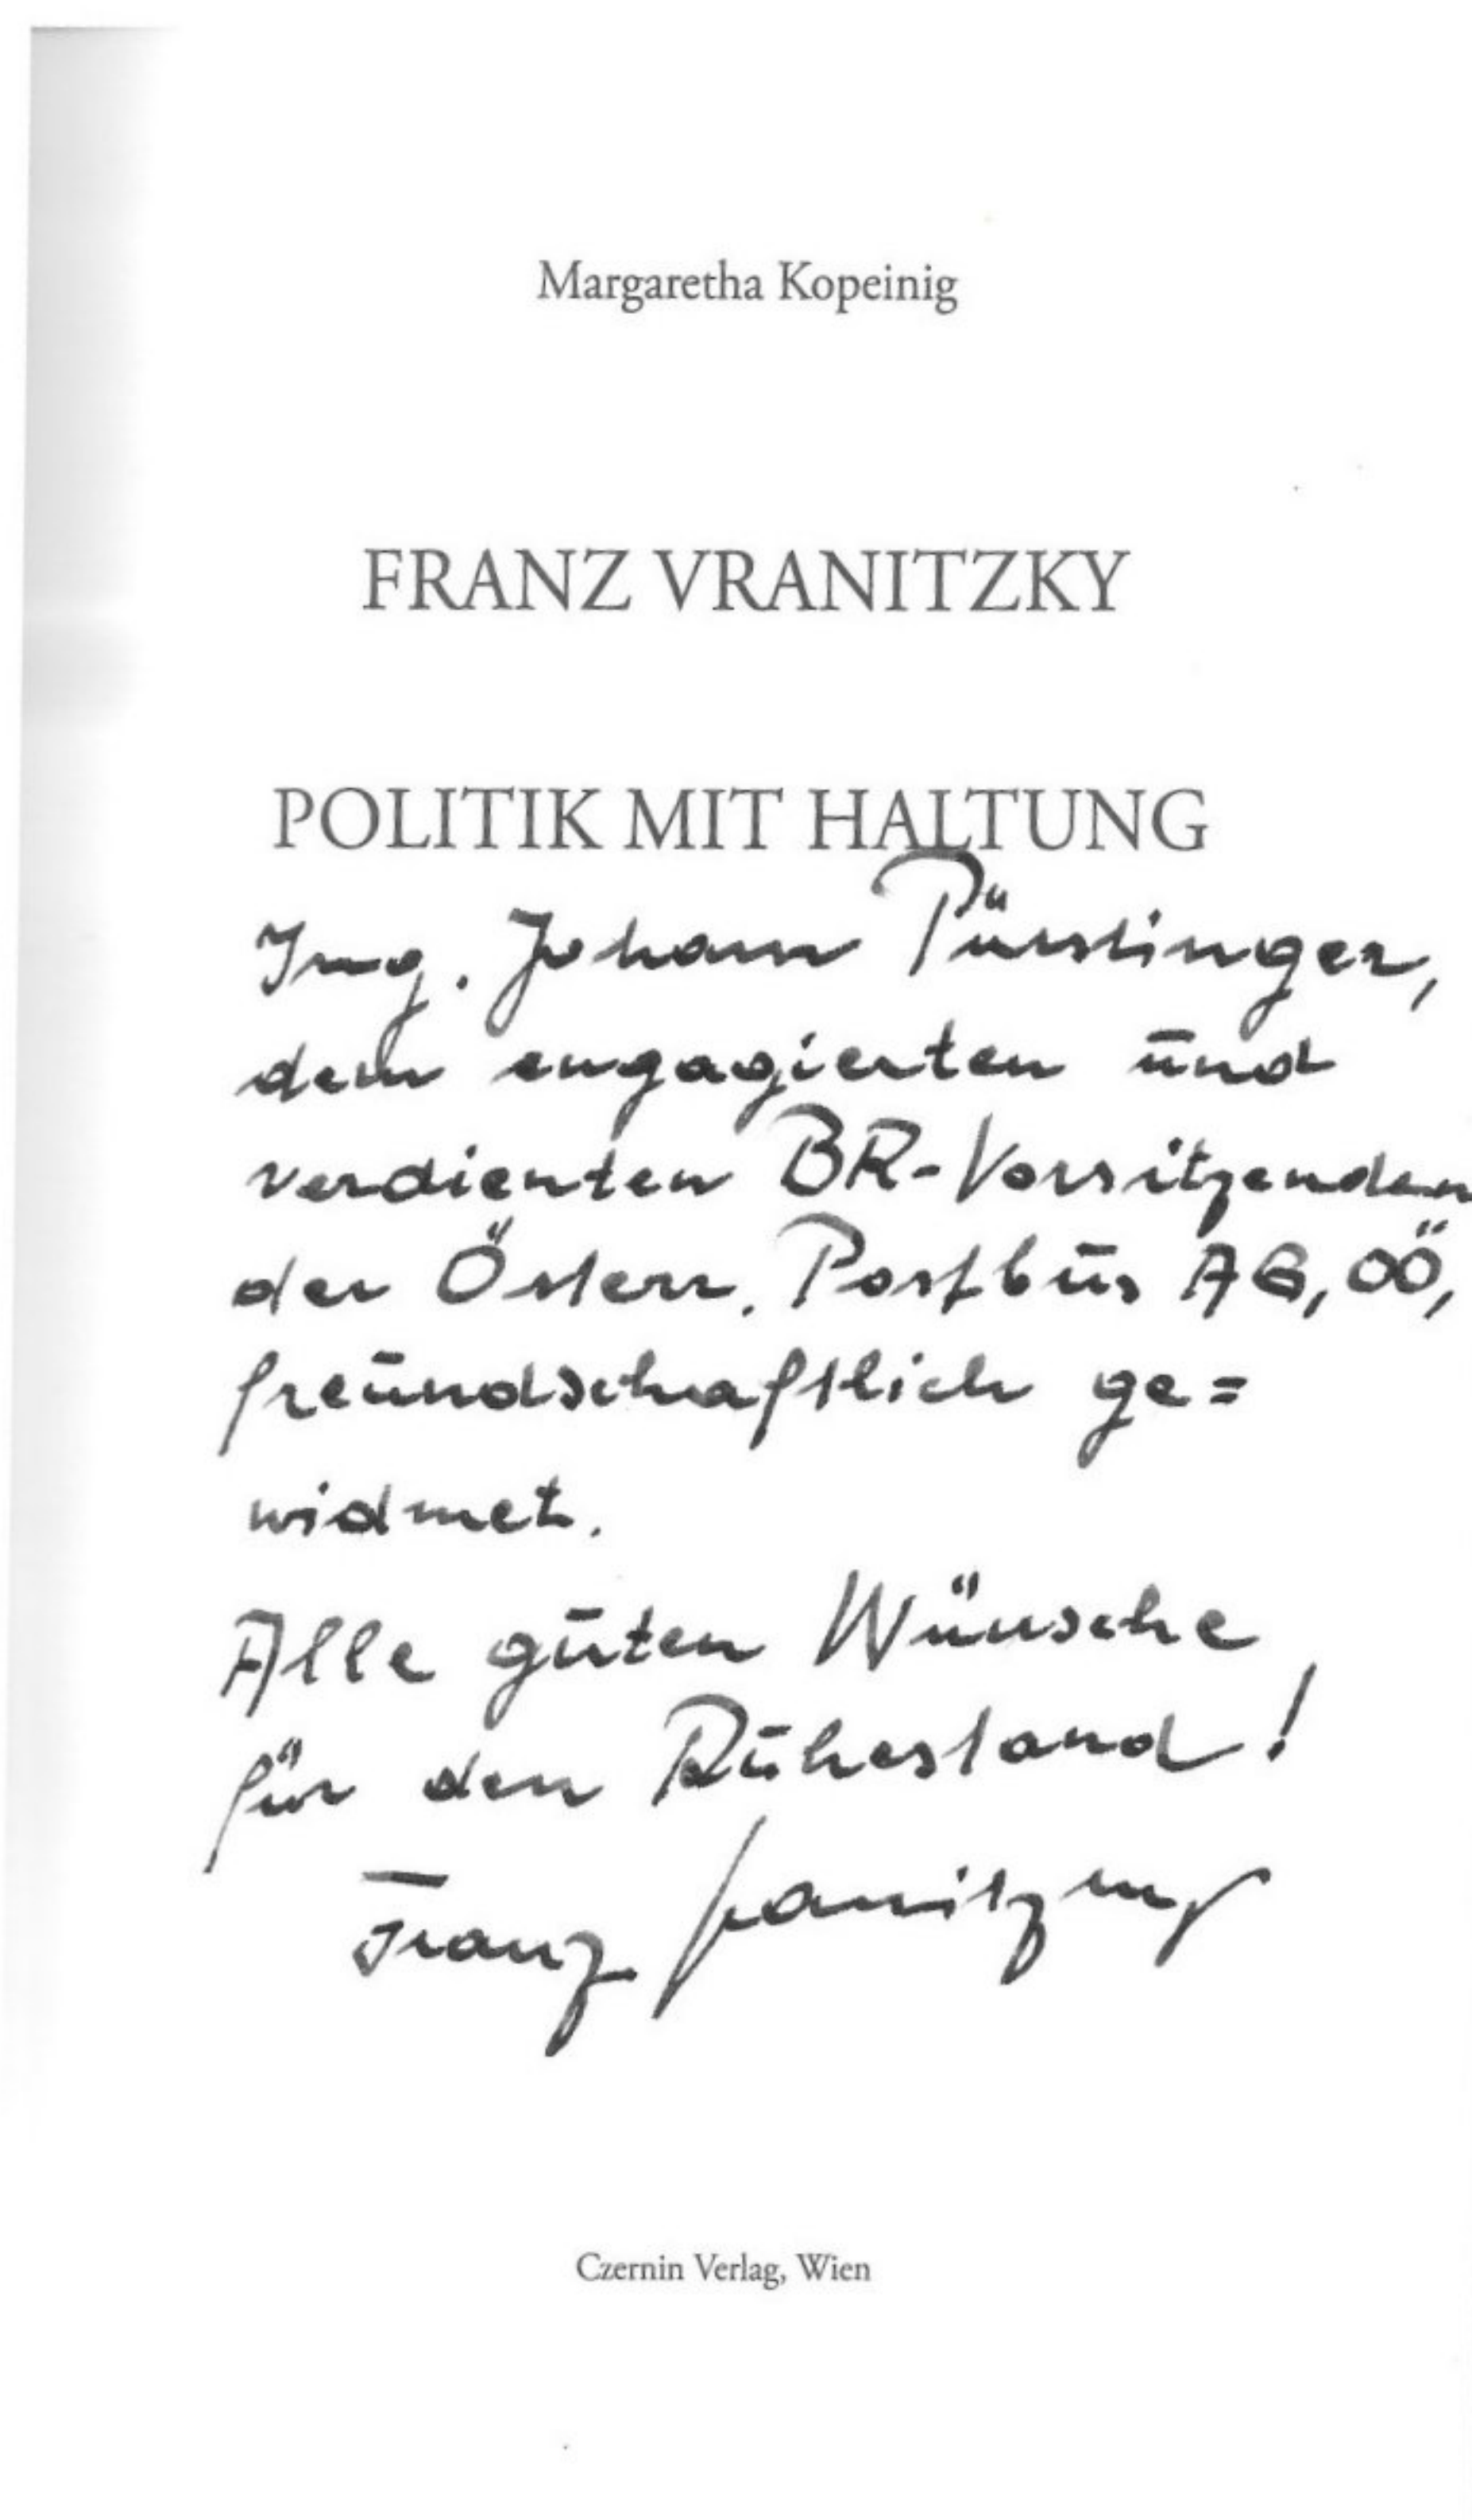 Margaretha Kopeinig
FRANZ VRANITZKY
POLITIK MIT HALTUNG
Ing. Johann Pürstinger,
dem engagierten und
verdienten BR-Vorsitzenden
der Österr. Postbus AG, OÖ,
freundschaftlich ge=
widmet.
Alle guten Wünsche
für den Ruhestand!
Franz Vranitzky
Czernin Verlag, Wien